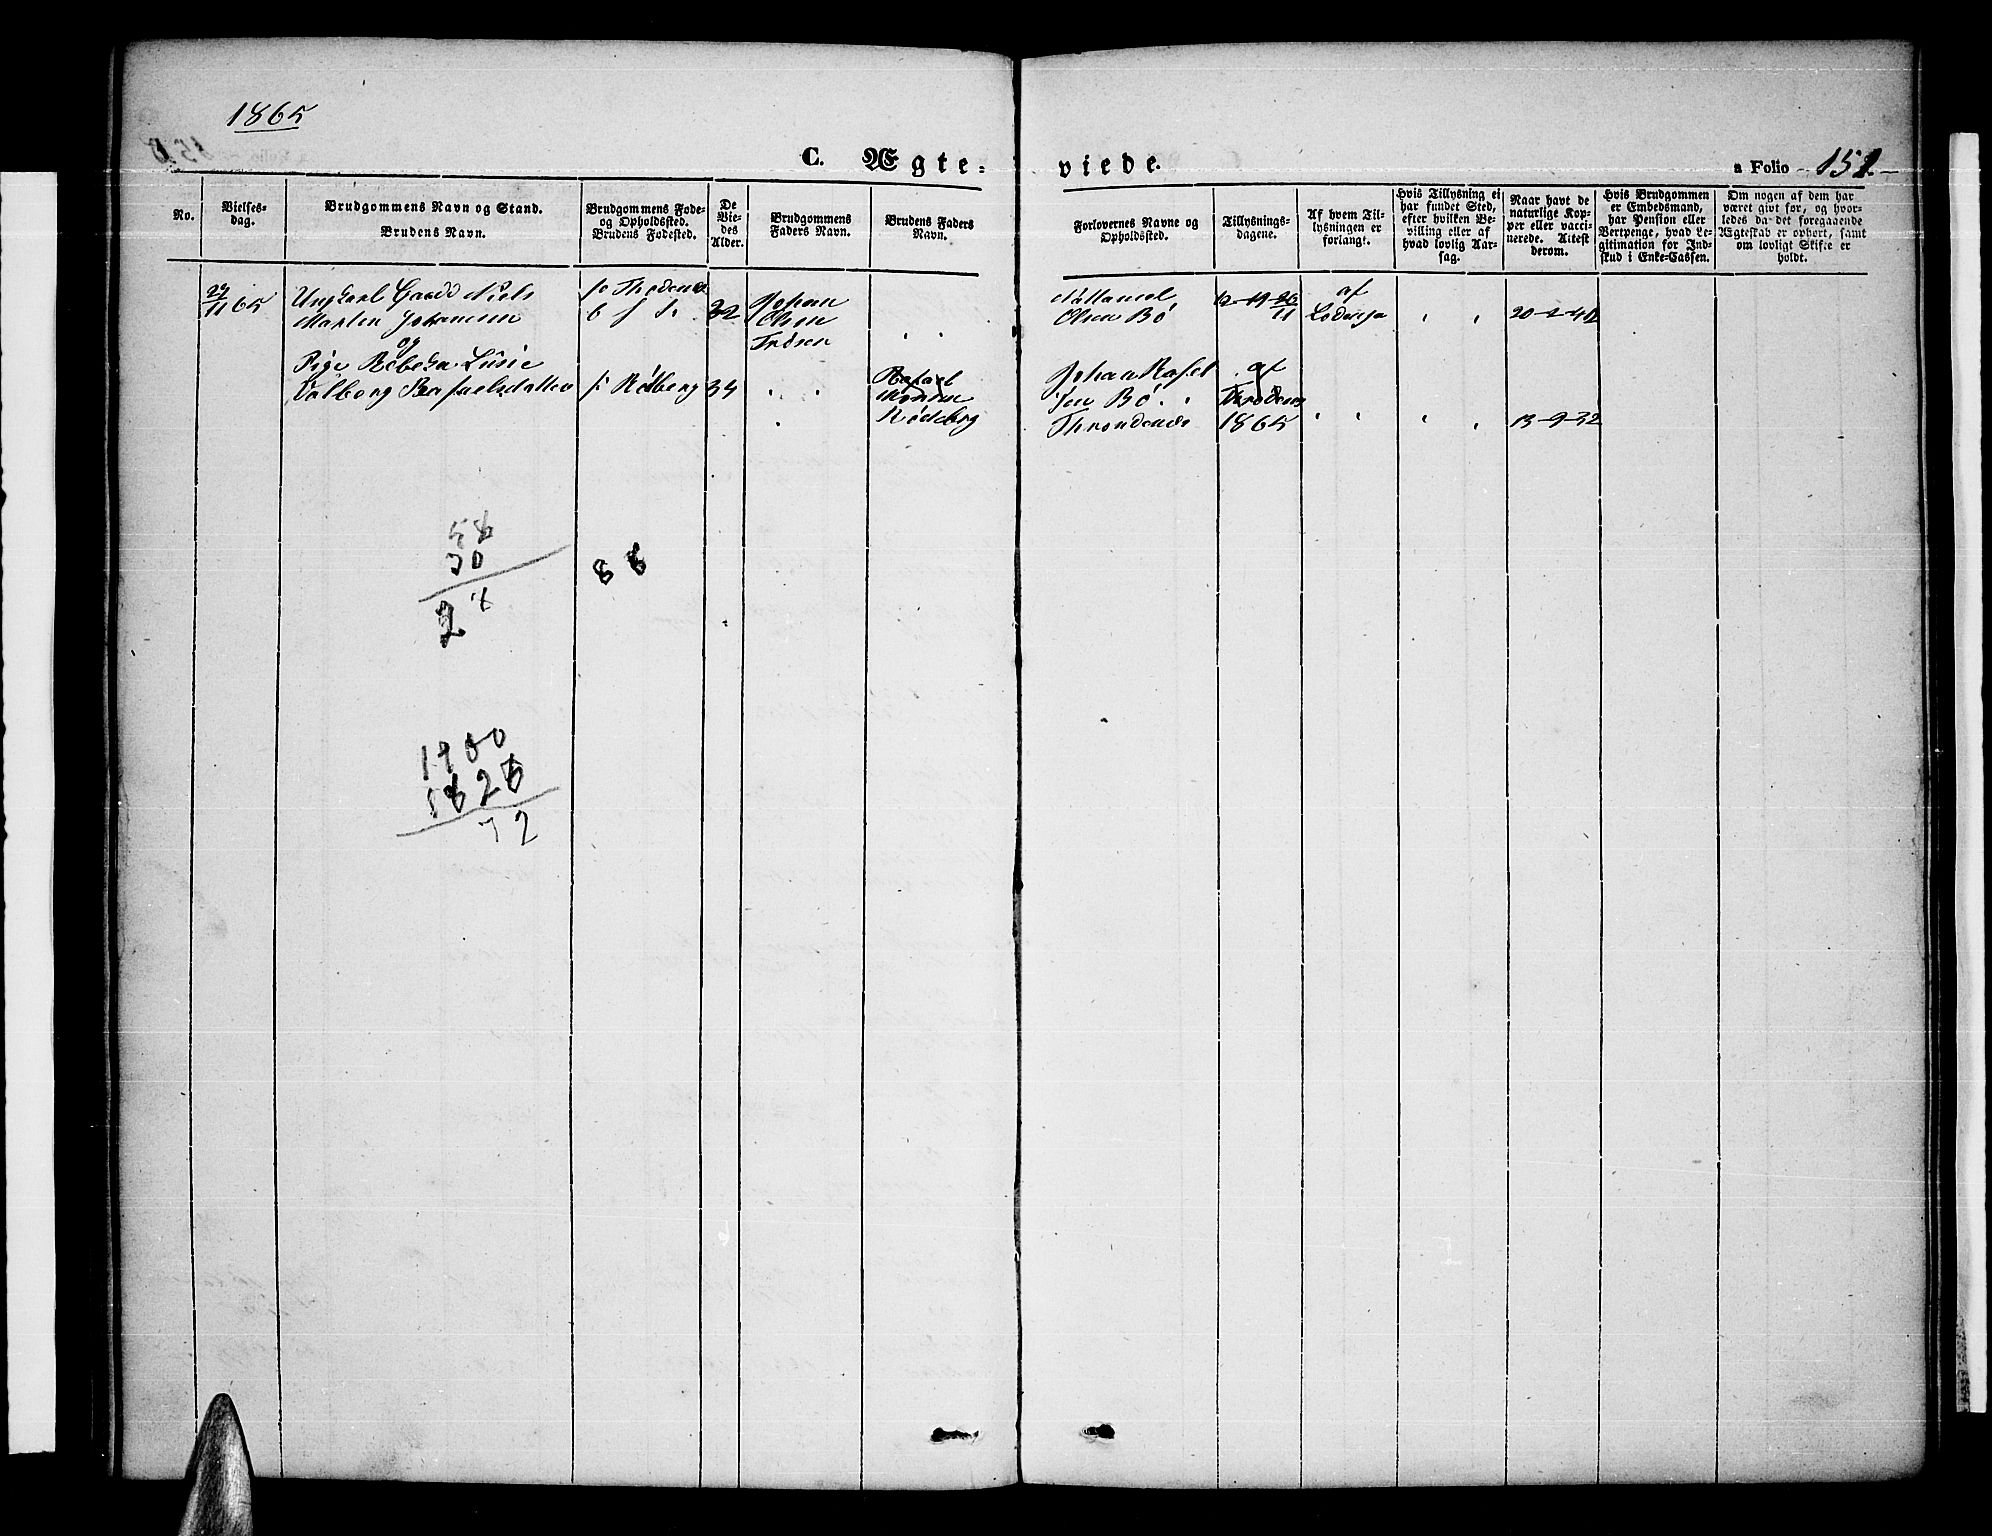 1865
C. Ægte-
viede.
a Folio 151
No.
Vielses-
dag.
Brudgommens Navn og Stand.
Brudens Navn.
Brudgommens Føde-
og Opholdssted.
Brudens Fødested.
De
Vie-
des
Alder.
Brudgommens
Faders Navn.
Brudens Faders
Navn.
Forlovernes Navne og
Opholdssted.
Tillysnings-
dagene.
Af hvem Til-
lysningen er
forlangt.
Hvis Tillysning ei
har fundet Sted,
efter hvilken Be-
villing eller af
hvad lovlig Aar-
sag.
Naar havt de
naturlige Kop-
per eller vacci-
nerede. Attest
derom.
Hvis Brudgommen
er Embedsmand,
har Pension eller
Vertpenge, hvad Le-
gitimation for Ind-
skud i Enke-Cassen.
Om nogen af dem har
været givt før, og hvor-
ledes da det foregaaende
Ægteskab er ophørt, samt
om lovligt Skifte er
holdt.
11 65
Ungkarl Niels
Martin Johansen
og
Pige Rebeka Lusie
Valborg Rafaelsdatter
32
Johan
Olsen
Rødberg 34
Rafael
Monsen
Rødberg
Olsen Bø
12-19-26
11
af
Johan Rafel
sen Bø
Throndenæs
af
1865
13-9-32
58
30
2
86
1900
1828
72